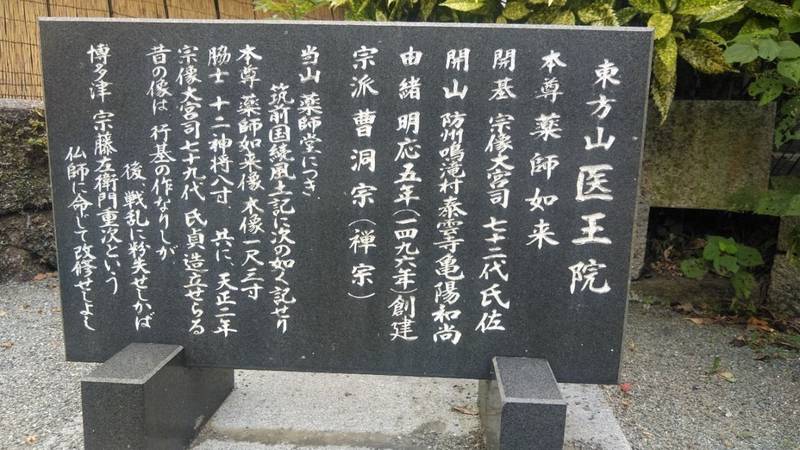 東方山 医王院
本尊 薬師如来
開基 宗像大宮司 七十二代氏佐
開山 防州鳴滝村泰雲寺亀陽和尚
由緒 明応五年(一四九六年)創建
宗派 曹洞宗(禅宗)
当山 薬師堂につき
筑前国続風土記に次の如く記せり
本尊 薬師如来像 木像一尺三寸
脇士 十二神将八寸 共に、天正二年
宗像大宮司七十九代 氏貞 造立せらる
昔の像は 行基の作なりしが
後 戦乱に紛失せしかば
博多津 宗藤左衛門重次という
仏師に命じて改修せしよし